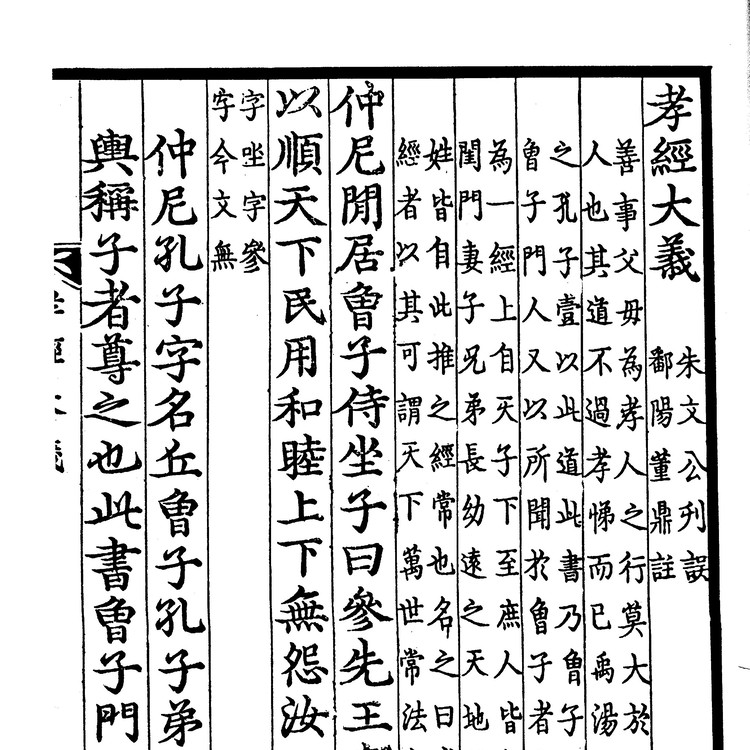 孝經大義
朱文公刋誤
鄱陽董鼎註
善事父母為孝人之行莫大於
人也其道不過孝悌而已禹湯
之孔子壹以此道此書乃曾子
曾子門人又以所聞於曾子者
為一經上自天子下至庶人皆
閨門妻子兄弟長幼遠之天地
姓皆自此推之經常也名之曰
經者以其可謂天下萬世常法
仲尼閒居曾子侍坐子曰參先王
以順天下民用和睦上下無怨汝
字坐字參
字今文無
仲尼孔子字名丘曾子孔子弟
輿稱子者尊之也此書曾子門